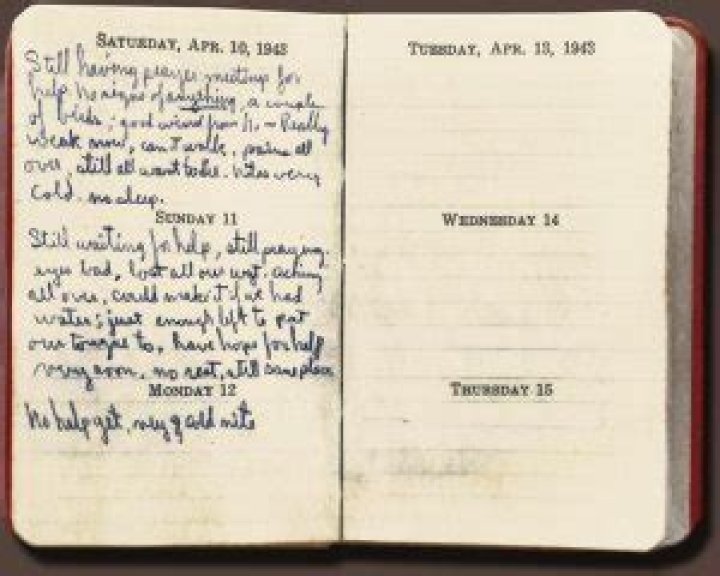 SATURDAY, APR. 10, 1943
Still having prayer meetings for
help. No signs of anything, a couple
of birds; good wind from N. - Really
weak now, can't walk, pains all
over, still all want to die. Nites very
cold. no sleep.
SUNDAY 11
Still waiting for help, still praying.
eyes bad, lost all our wgt. aching
all over, could make it if we had
water; just enough left to put
our tongue to, have hope for help
very soon, no rest, still same place.
MONDAY 12
No help yet, very cold nite
TUESDAY, APR. 13, 1943
WEDNESDAY 14
THURSDAY 15